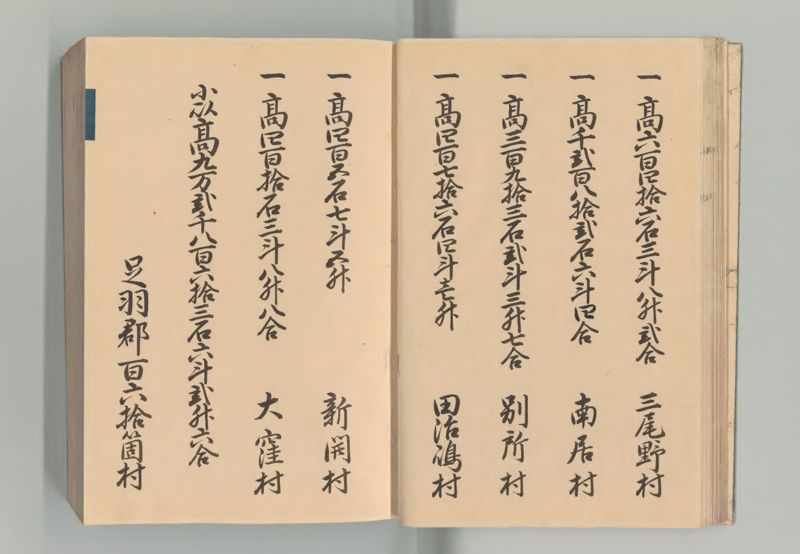 一高六百四拾六石三斗八升弐合 三尾野村
一高千弐百八拾弐石六斗四合 南居村
一高三百九拾三石弐斗三升七合 別所村
一高四百七拾六石四斗壱升 田治嶋村
一高四百五石七斗五升 新開村
一高四百拾石三斗八升八合 大窪村
小以高九万弐千八百六拾三石六斗弐升六合
足羽郡百六拾箇村